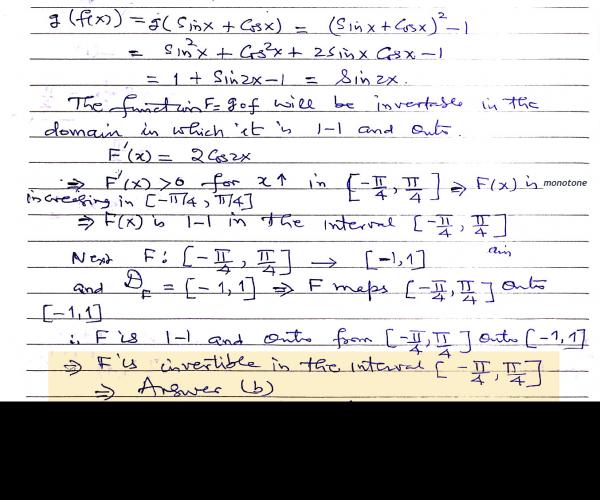 g(f(x)) = g(Sinx + Cosx) = (Sinx + Cosx)² - 1
= Sin²x + Cos²x + 2Sinx Cosx - 1
= 1 + Sin2x - 1 = Sin 2x.
The function F = gof will be invertable in the
domain in which it is 1-1 and onto.
F'(x) = 2Cos2x
⇒ F'(x) > 0 for x↑ in [-π/4, π/4] ⇒ F(x) is monotone
increasing in [-π/4, π/4]
⇒ F(x) is 1-1 in the interval [-π/4, π/4]
Next F: [-π/4, π/4] → [-1,1]
and D_F = [-1,1] ⇒ F maps [-π/4, π/4] onto
[-1,1]
∴ F is 1-1 and onto from [-π/4, π/4] onto [-1,1]
⇒ F is invertible in the interval [-π/4, π/4]
⇒ Answer (b)